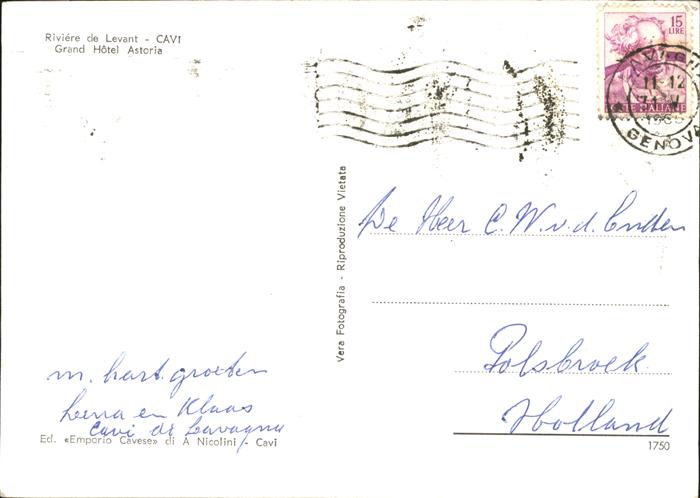 Riviére de Levant - CAVI
Grand Hôtel Astoria
15
LIRE
POSTE ITALIANE
11-12
GENOVA
Vera Fotografia - Riproduzione Vietata
De Heer C. W. v. d.
Polsbroek
Holland
1750
m. hart. groeten
Leena en Klaas
Cavi di Lavagna
Ed. «Emporio Cavese» di A Nicolini - Cavi